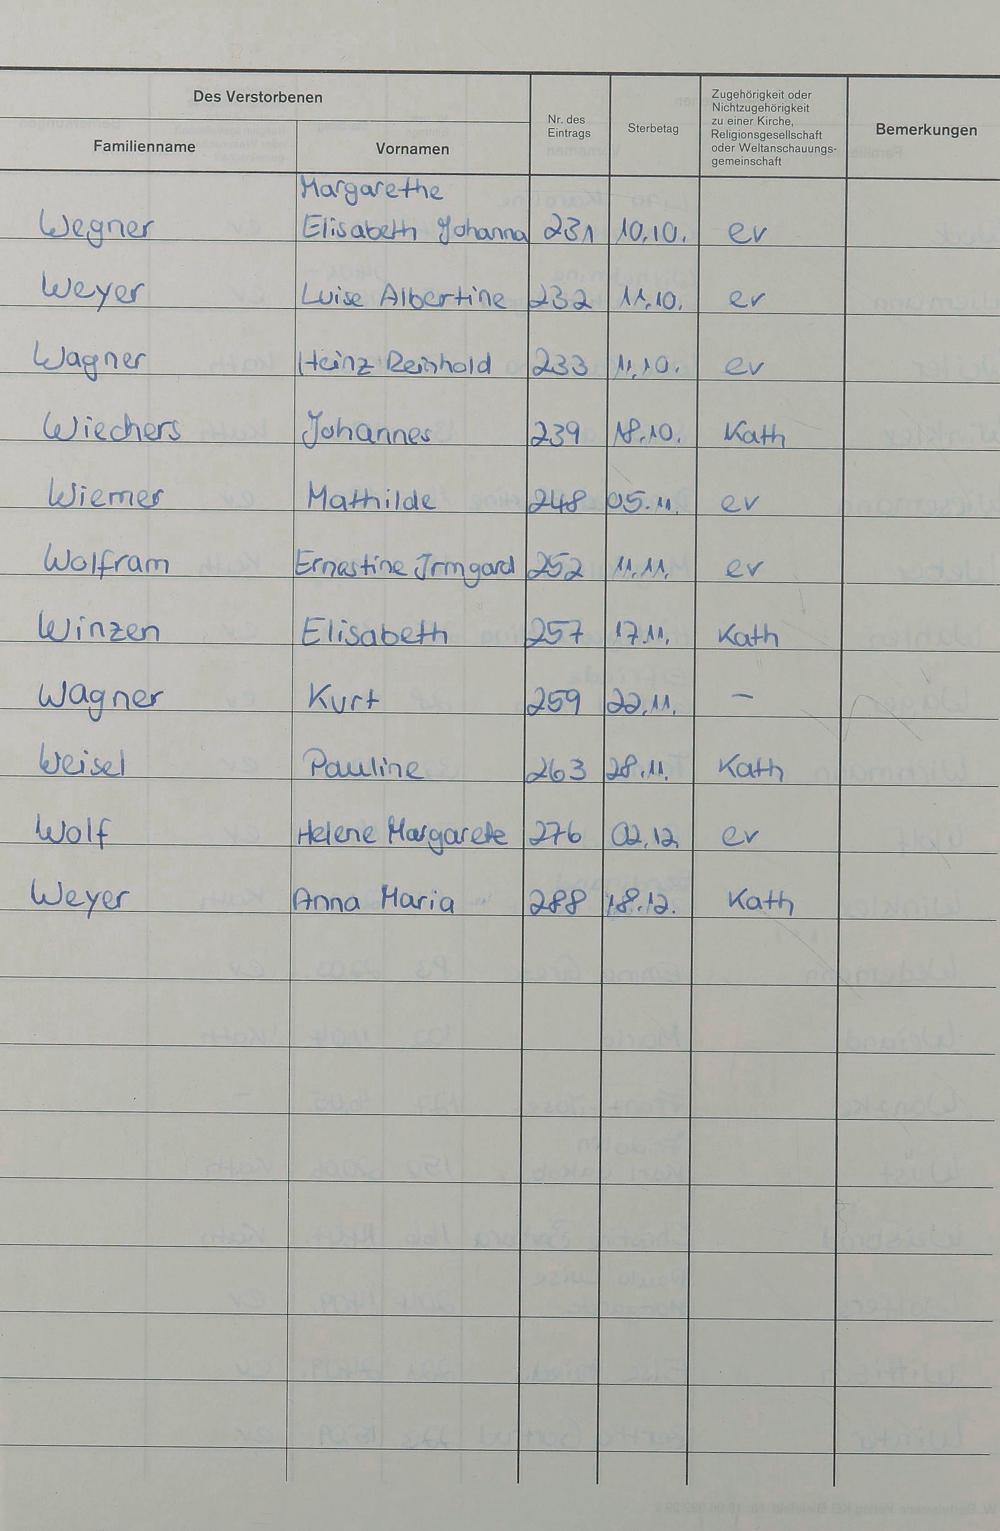 Des Verstorbenen
Familienname
Vornamen
Nr. des
Eintrags
Sterbetag
Zugehörigkeit oder
Nichtzugehörigkeit
zu einer Kirche,
Religionsgesellschaft
oder Weltanschauungs-
gemeinschaft
Bemerkungen
Margarethe
Wegner Elisabeth Johanna 231 10.10. ev
Weyer Luise Albertine 232 11.10. ev
Wagner Heinz Reinhold 233 11.10. ev
Wiechers Johannes 239 18.10. Kath
Wiemer Mathilde 248 05.11. ev
Wolfram Ernestine Irmgard 252 11.11. ev
Winzen Elisabeth 257 17.11. Kath
Wagner Kurt 259 22.11. —
Weisel Pauline 263 28.11. Kath
Wolf Helene Margarete 276 02.12. ev
Weyer Anna Maria 288 18.12. Kath